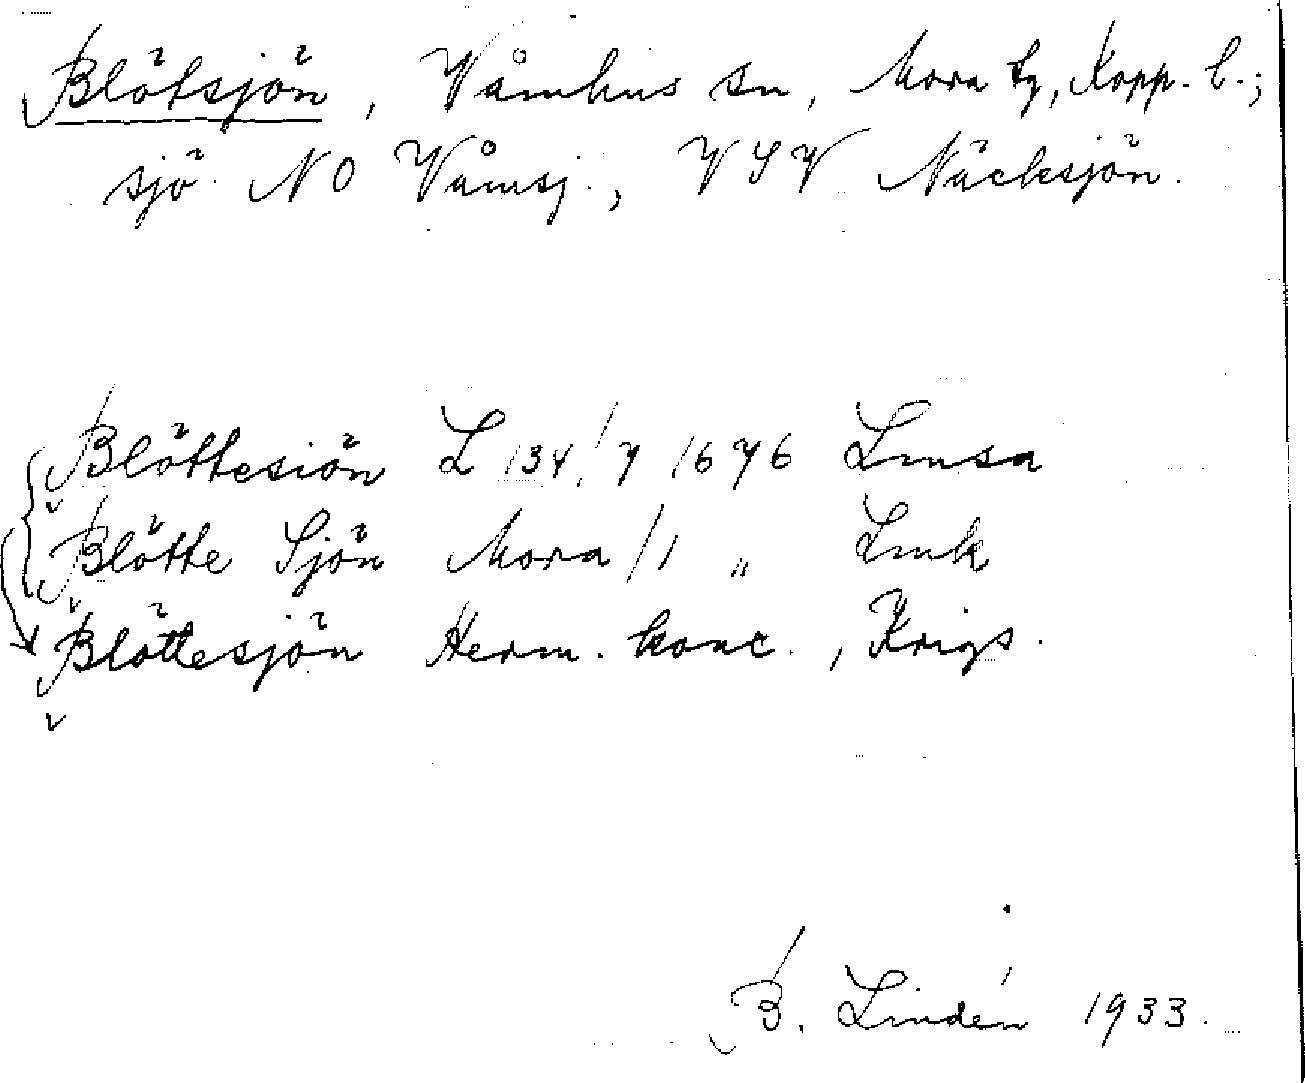 Blötsjön, Våmhus sn, Mora tg, Kopp. l.;
sjö NO Våmsj., VSV Näcksjön.
Blöttesiön L 134:/7 1676 Lmsa
Blötte Sjön Mora/1 „ Lmk
Blöttesjön Herm. konc., Krigs.
B. Lindén 1933.